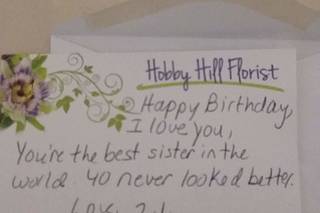 Hobby Hill Florist
Happy Birthday,
I love you,
You're the best sister in the
world. 40 never looked better.
Love,